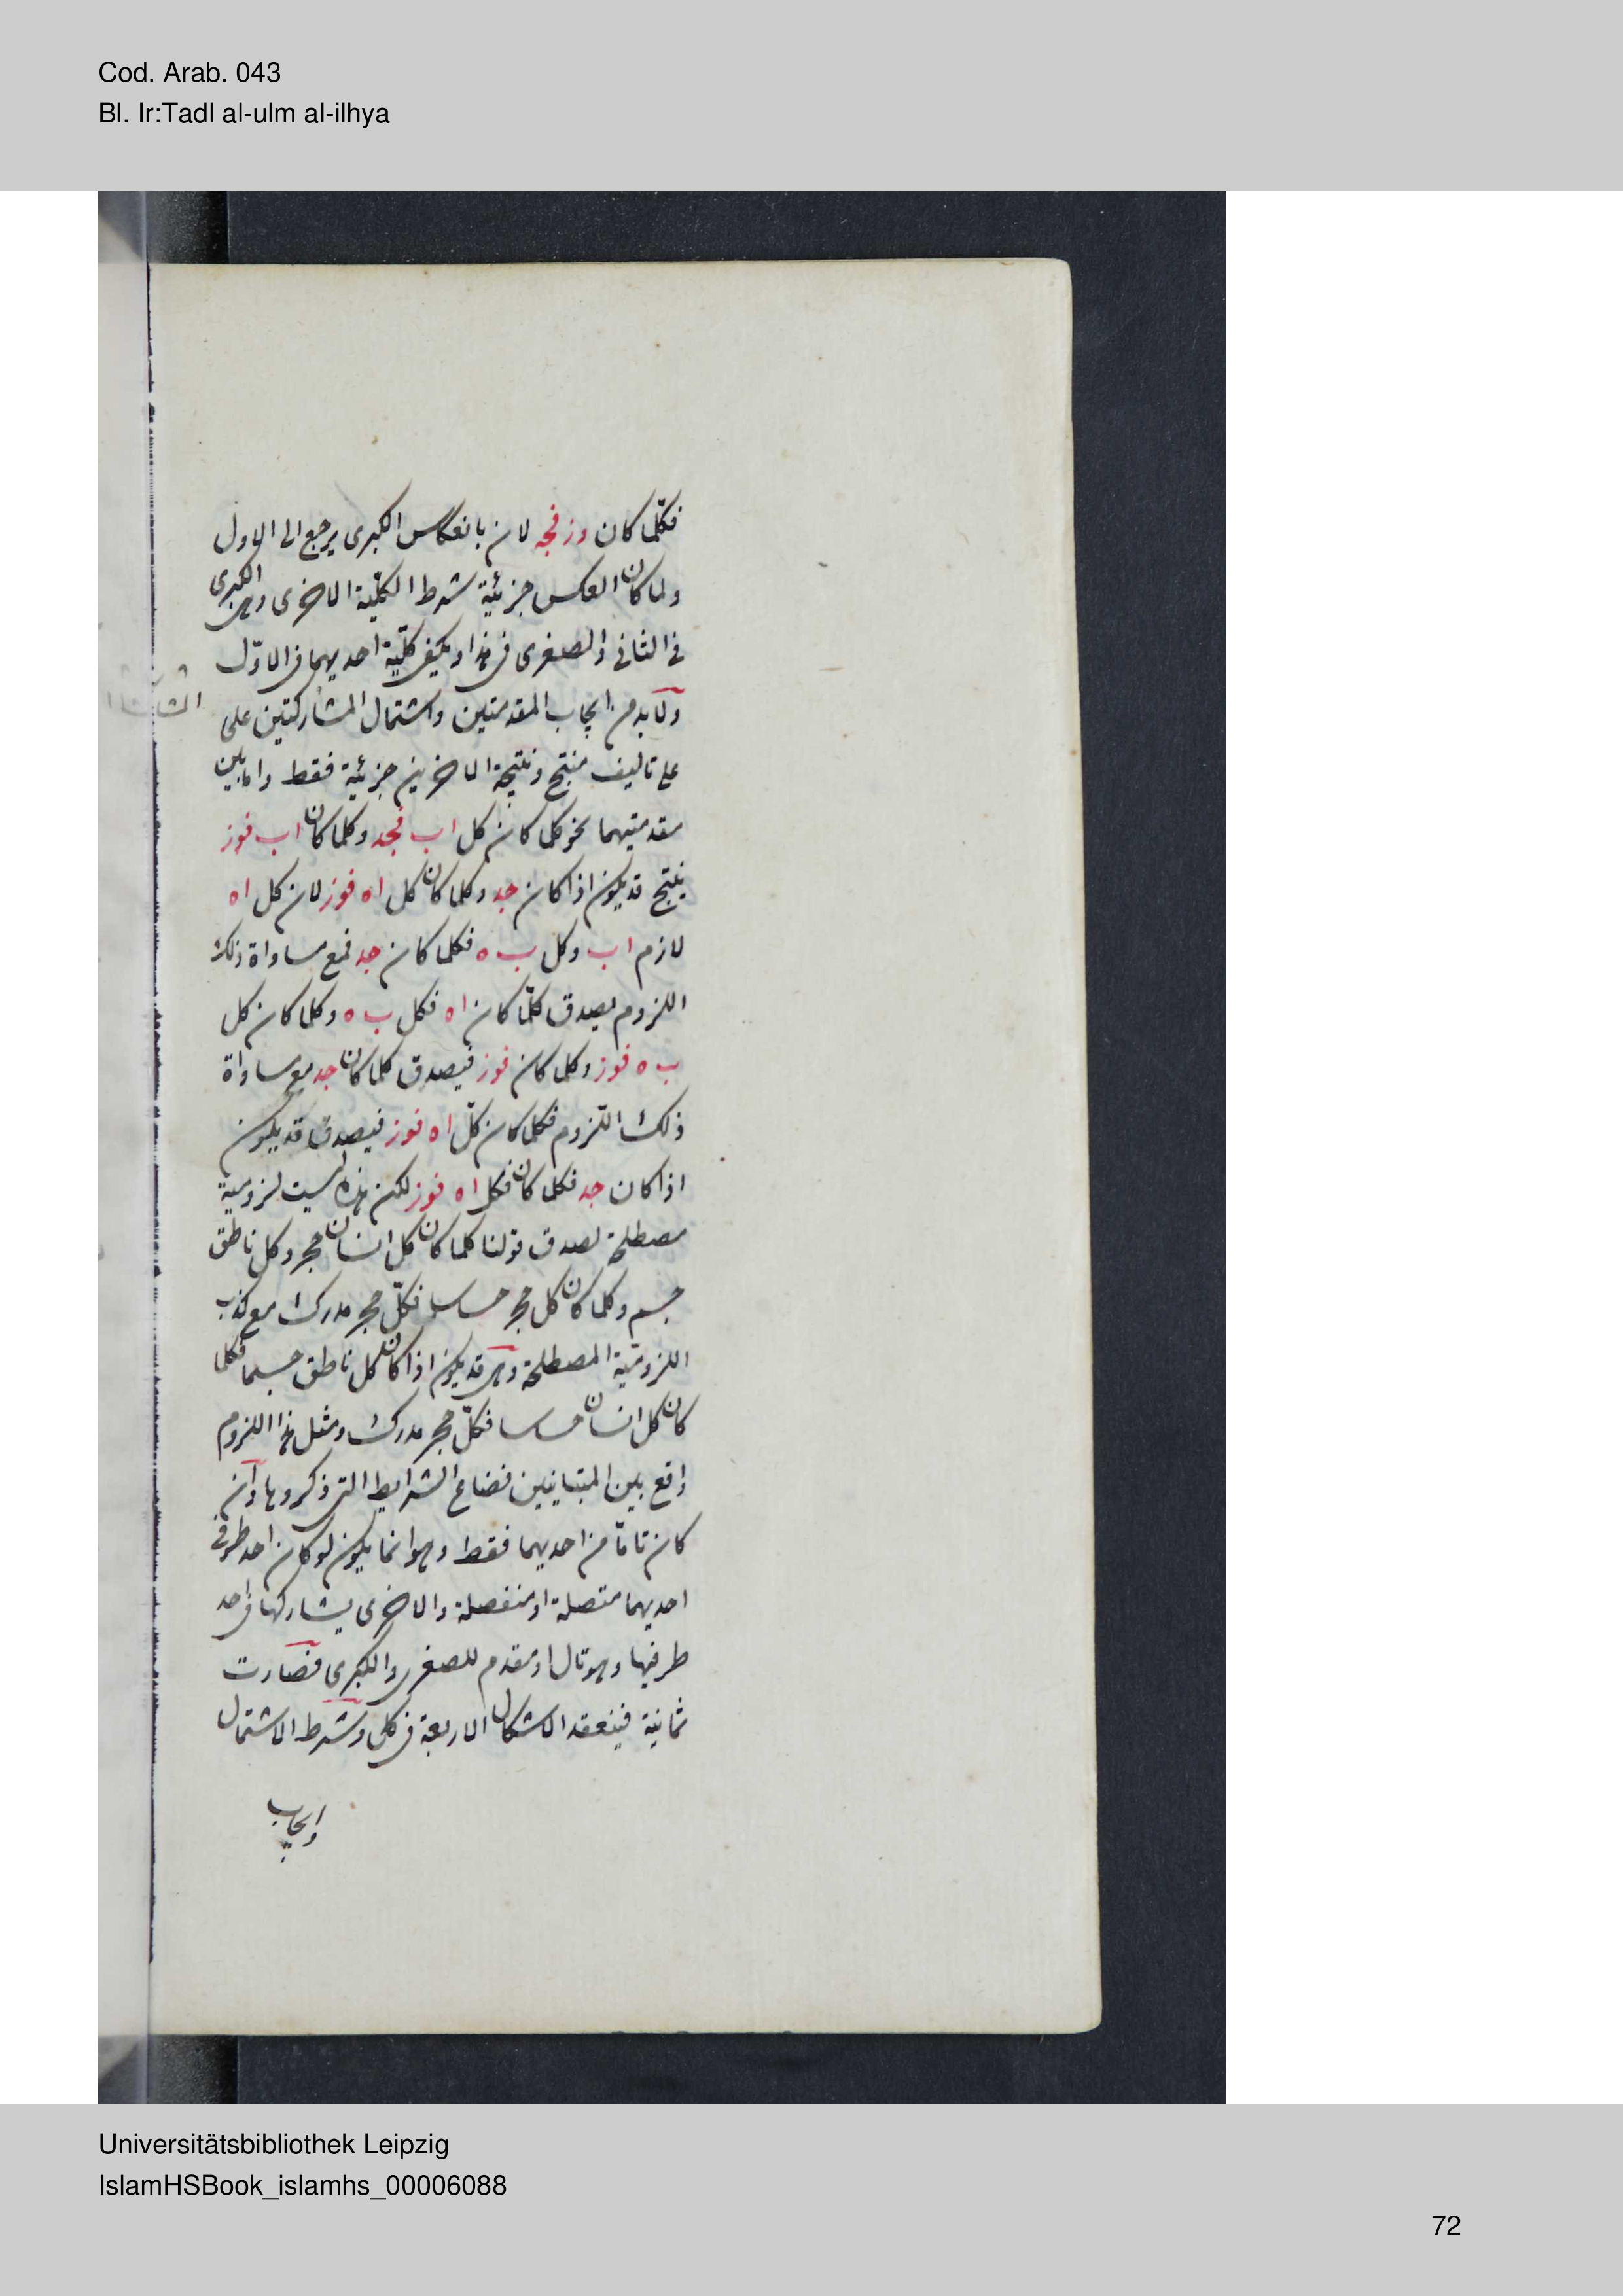 Cod. Arab. 043
Bl. Ir:Tadl al-ulm al-ilhya
فكلّما كان وز فجه لان بانعكاس الكبرى يرجع الى الاول
ولما كان العكس جزئية شرط الكلّية الاخرى وهى الكبرى
فى الثانى والصغرى فى هذا ويكفى كلّية احديهما فى الاوّل
ولابد من ايجاب المقدمتين واشتمال المشاركتين على
على تاليف منتج ونتيجة الاخرين جزئية فقط
مقدمتيهما نحو كلما كان كل اب فجد وكلما كان اب فوز
ينتج قد يكون اذا كان جد وكلما كان كل اه فوز لان كل اه
لازم اب وكل ب ه فكلما كان جد فمع مساواة ذلك
اللزوم يصدق كلّما كان اه فكل ب ه وكلما كان كل
ب ه فوز وكلما كان فوز فيصدق كلما كان جد مع مساواة
ذلك اللّزوم فكلما كان كلّ اه فوز فيصدق قد يكون
اذا كان جد فكلما كان فكل اه فوز لكن هذه ليست لزومية
مصطلحة لصدق قولنا كلما كان كل انسان حجر وكل ناطق
جسم وكلما كان كل حجر حساس فكلّ حجر مدرك مع كذب
اللزوميّة المصطلحة وهى قد يكون اذا كان كل ناطق جسما فكلما
كان كل انسان حساسا فكلّ حجر مدرك ومثل هذا اللزوم
واقع بين المتباينين فضاع الشرايط التى ذكروها وان
كان تامّا من احديهما فقط وهو انما يكون لو كان احد طرفى
احديهما متصلة او منفصلة والاخرى يشاركها فى احد
طرفيها وهو تال او مقدم للصغرى والكبرى فصارت
ثمانية فينعقد الاشكال الاربعة فى كل وشرط الاشتمال
وايجاب
Universitätsbibliothek Leipzig
IslamHSBook_islamhs_00006088
72